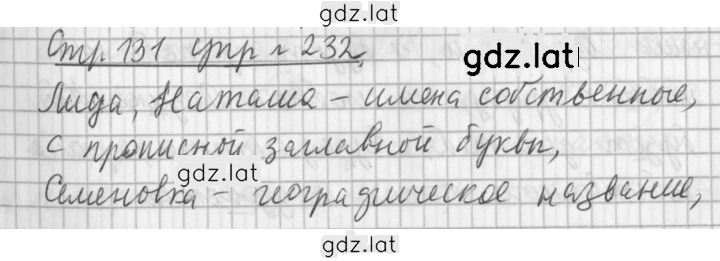 gdz.lat
Стр. 131 упр. 232,
gdz.lat
Лида, Наташа – имена собственные,
с прописной заглавной буквы,
gdz.lat
Семеновка – географическое название,
gdz.lat